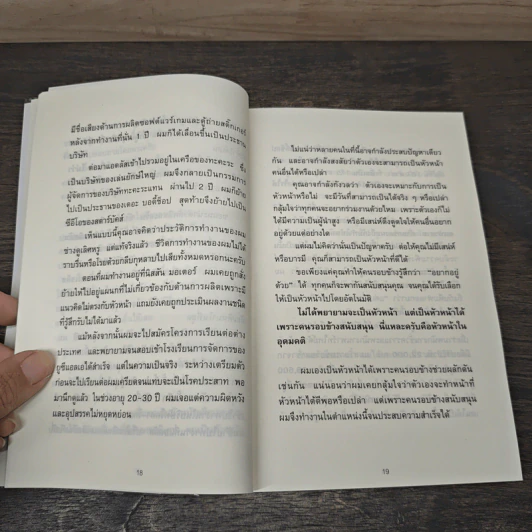 มีชื่อเสียงด้านการผลิตซอฟต์แวร์เกมและตู้ถ่ายสติ๊กเกอร์
หลังจากทำงานที่นั่น 1 ปี ผมก็ได้เลื่อนขึ้นเป็นประธาน
บริษัท
ต่อมาแอตลัสเข้าไปรวมอยู่ในเครือของทะคะระ ซึ่ง
เป็นบริษัทของเล่นยักษ์ใหญ่ ผมจึงกลายเป็นกรรมการ
ผู้จัดการของบริษัททะคะระแทน ผ่านไป 2 ปี ผมก็ย้าย
ไปเป็นประธานของเดอะ บอดี้ช็อป สุดท้ายจึงย้ายไปเป็น
ซีอีโอของสตาร์บัคส์
เห็นแบบนี้คุณอาจคิดว่าประวัติการทำงานของผม
ช่างดูเลิศหรู แต่แท้จริงแล้ว ชีวิตการทำงานของผมไม่ได้
ราบรื่นหรือโรยด้วยกลีบกุหลาบไปเสียทั้งหมดหรอกนะครับ
ตอนที่ผมทำงานอยู่ที่นิสสัน มอเตอร์ ผมเคยถูกสั่ง
ย้ายให้ไปอยู่แผนกที่ไม่เกี่ยวข้องกับด้านการผลิตเพราะมี
แนวคิดไม่ตรงกับหัวหน้า แถมยังเคยถูกประเมินผลงานชนิด
ที่รู้สึกรับไม่ได้มาแล้ว
แม้หลังจากนั้นผมจะไปสมัครโครงการเรียนต่อต่าง
ประเทศ และพยายามจนสอบเข้าโรงเรียนการจัดการของ
ยูซีแอลเอได้สำเร็จ แต่ในความเป็นจริง ระหว่างเตรียมตัว
ก่อนจะไปเรียนต่อผมเครียดจนแทบจะเป็นโรคประสาท พอ
มานึกดูแล้ว ในช่วงอายุ 20-30 ปี ผมเจอแต่ความผิดหวัง
และอุปสรรคไม่หยุดหย่อน
18
ไม่แน่ว่าหลายคนในที่นี้อาจกำลังประสบปัญหาเดียว
กัน และอาจกำลังสงสัยว่าตัวเองจะสามารถเป็นหัวหน้า
คนอื่นได้หรือเปล่า
คุณอาจกำลังกังวลว่า ตัวเองจะเหมาะกับการเป็น
หัวหน้าหรือไม่ จะมีวันที่สามารถเป็นได้จริง ๆ หรือเปล่า
กลุ้มใจว่าทุกคนจะอยากร่วมงานด้วยไหม เพราะตัวเองก็ไม่
ได้มีความเป็นผู้นำสูง หรือมีเสน่ห์ดึงดูดใจให้คนอื่นอยาก
อยู่ด้วยแต่อย่างใด
แต่ผมไม่คิดว่านั่นเป็นปัญหาครับ ต่อให้คุณไม่มีเสน่ห์
หรือบารมี คุณก็สามารถเป็นหัวหน้าที่ดีได้
ขอเพียงแค่คุณทำให้คนรอบข้างรู้สึกว่า “อยากอยู่
ด้วย” ได้ ทุกคนก็จะพากันสนับสนุนคุณ จนคุณได้รับเลือก
ให้เป็นหัวหน้าไปโดยอัตโนมัติ
ไม่ได้พยายามจะเป็นหัวหน้า แต่เป็นหัวหน้าได้
เพราะคนรอบข้างสนับสนุน นี่แหละครับคือหัวหน้าใน
อุดมคติ
ผมเองเป็นหัวหน้าได้เพราะคนรอบข้างช่วยผลักดัน
เช่นกัน แน่นอนว่าผมเคยกลุ้มใจว่าตัวเองจะทำหน้าที่
หัวหน้าได้ดีพอหรือเปล่า แต่เพราะคนรอบข้างสนับสนุน
ผมจึงทำงานในตำแหน่งนี้จนประสบความสำเร็จได้
19